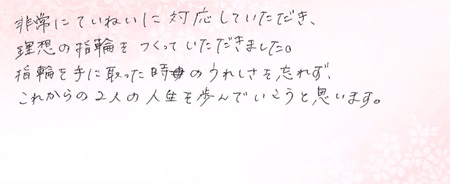 非常にていねいに対応していただき、
理想の指輪をつくっていただきました。
指輪を手に取った時のうれしさを忘れず、
これからの2人の人生を歩んでいこうと思います。